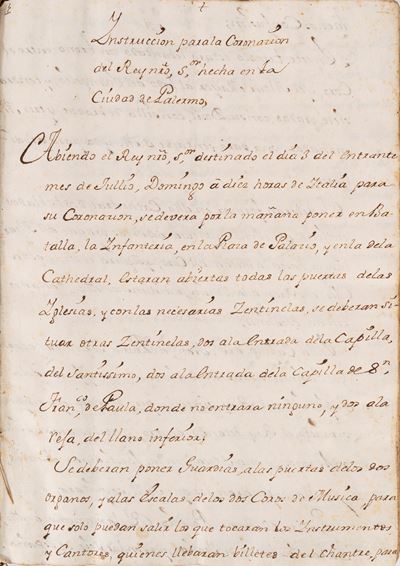 Ynstrucción para la Coronacion
del Rey nrõ, S.or hecha en la
Ciudad de Palermo,
Abiendo el Rey nrõ, S.or destinado el dia 3 del entrante
mes de Jullio, Domingo â diez horas de Italia para
su Coronacion, se devera por la mañana poner en Ba-
talla, la Infanteria, en la Plaza de Palacio, y en la dela
Cathedral, estaran abiertas todas las puertas delas
Yglesias, y con las necesarias Zentinelas, se deberan si-
tuar otras Zentinelas, dos ala entrada dela Capilla,
del Santissimo, dos ala Entrada dela Capilla de S.n
Fran.co de Paula, donde no entrara ninguno, y dos ala
del llano inferior;
Se deberan poner Guardias, alas puertas delos dos
organos, y alas Escalas delos dos Coros de Musica para
que solo puedan salir los que tocaran los Ynstrumentos
y Cantores, quienes llebaran billetes del chantre, para